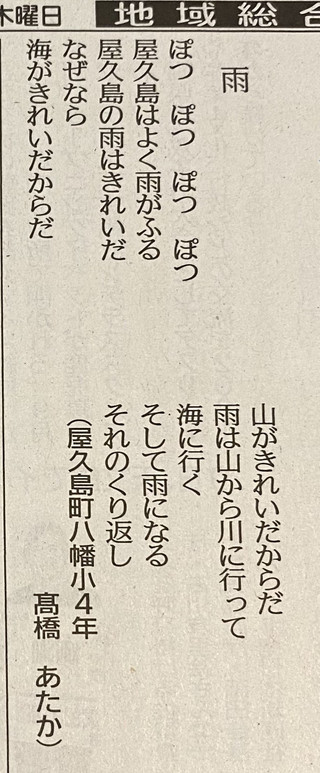 木曜日
地域総合
雨
ぽつ ぽつ ぽつ ぽつ
屋久島はよく雨がふる
屋久島の雨はきれいだ
なぜなら
海がきれいだからだ
山がきれいだからだ
雨は山から川に行って
海に行く
そして雨になる
それのくり返し
(屋久島町八幡小4年
髙橋 あたか)